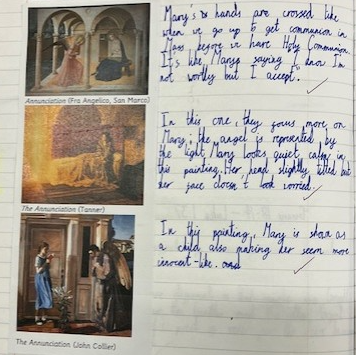 Mary's hands are crossed like
when we go up to get communion in
Mass before we have Holy Communion.
It's like Mary saying I know I'm
not worthy but I accept.
Annunciation (Fra Angelico, San Marco)
In this one, they focus more on
Mary; the angel is represented by
the light. Mary looks quiet, calm in
this painting. Her head slightly tilted but
her face doesn't look worried.
The Annunciation (Tanner)
In this painting, Mary is shown as
a child also making her seem more
innocent-like.
The Annunciation (John Collier)